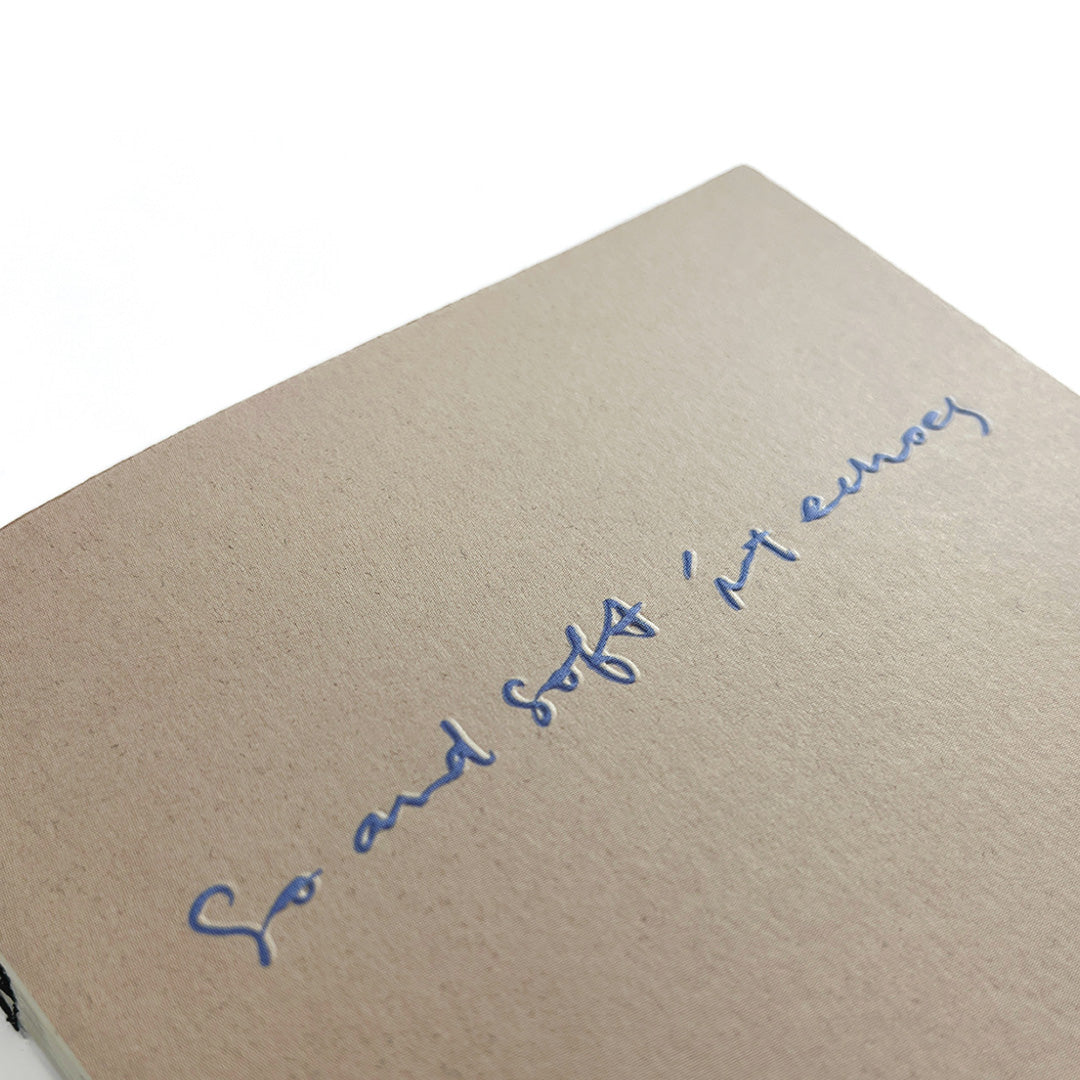 So and soft 'nt echoes